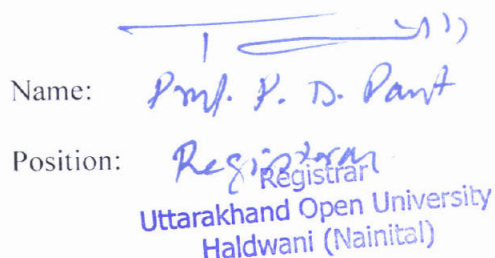 Name: Prof. P. D. Pant
Position: Registrar
Registrar
Uttarakhand Open University
Haldwani (Nainital)